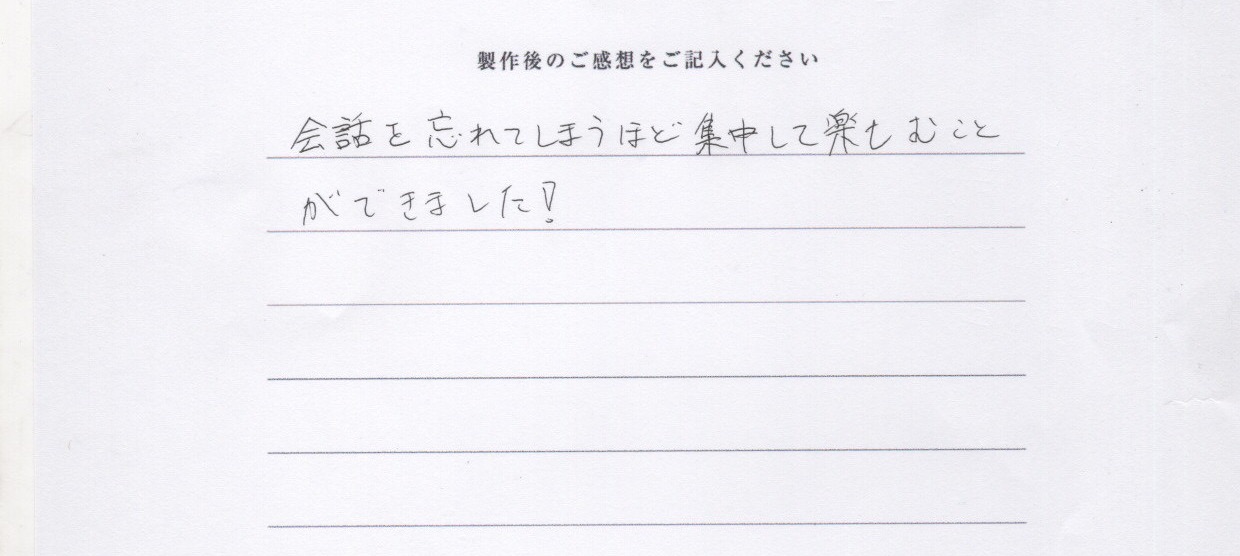 製作後のご感想をご記入ください
会話を忘れてしまうほど集中して楽しむこと
ができました!